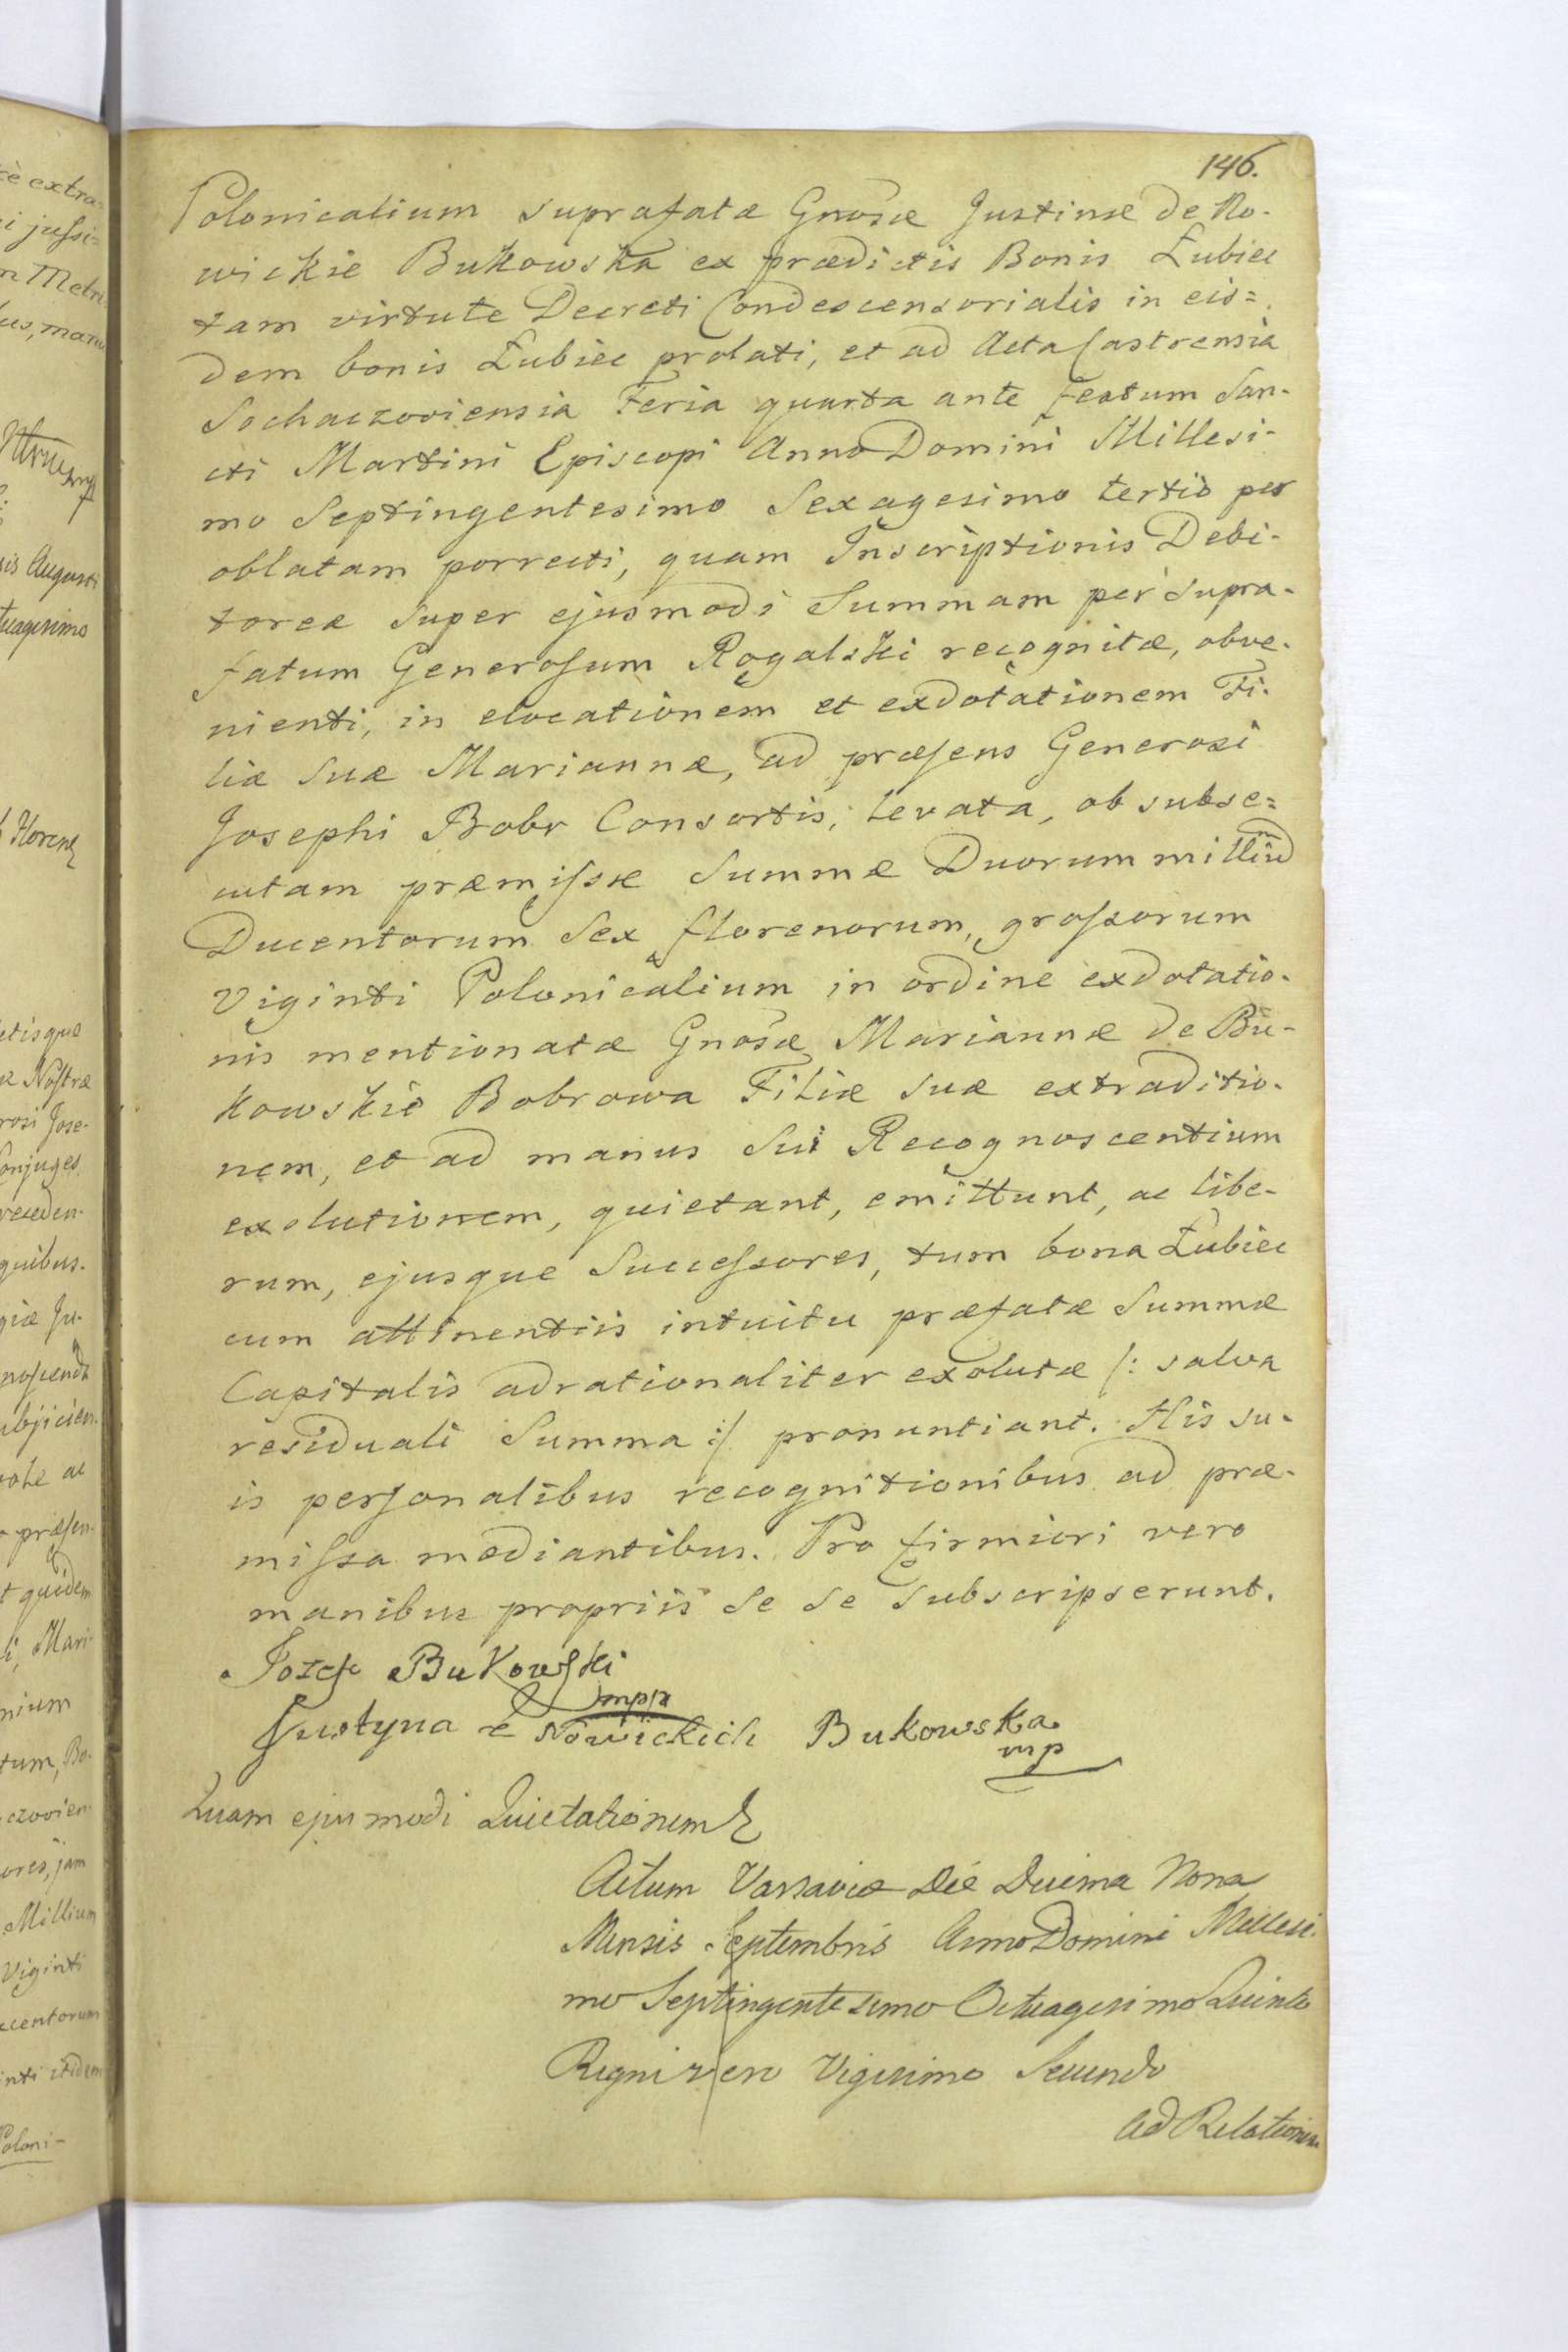 146.
Polonicalium suprafatæ Gnosæ Justinæ de No-
wickie Bukowska ex prædictis Bonis Łubiec
tam virtute Decreti Condescensorialis in eis=
dem bonis Łubiec prolati, et ad Acta Castrensia
Sochaczoviensia Feria quarta ante festum San-
cti Martini Episcopi Anno Domini Millesi-
mo Septingentesimo Sexagesimo tertio per
oblatam porrecti, quam Inscriptionis Debi-
toreæ super ejusmodi Summam per supra-
fatum Generosum Rogalski recognitæ, obve-
nienti, in elocationem et exdotationem Fi-
liæ suæ Mariannæ, ad præsens Generosi
Josephi Bobr Consortis, levata, ob subse=
cutam præmissæ Summæ Duorum millium
Ducentorum Sex florenorum, grossorum
Viginti Polonicalium in ordine exdotatio-
nis mentionatæ Gnosæ Mariannæ de Bu-
kowskie Bobrowa Filiæ suæ extraditio-
nem, et ad manus sui Recognoscentium
exolutionem, quietant, emittunt, ac libe-
rum, ejusque Successores, tum bona Łubiec
cum attinentiis intuitu præfatæ Summæ
Capitalis adrationaliter exolutæ /: salva
residuali Summa :/ pronuntiant. His su-
is personalibus recognitionibus ad præ-
missa mediantibus. Pro firmiori vero
manibus propriis se se subscripserunt.
Jozef Bukowski
mpp
Justyna z Nowickich Bukowska
mp
Quam ejusmodi Quietationem
Actum Varsaviæ Die Decima Nona
Mensis Septembris Anno Domini Millesi-
mo Septingentesimo Octuagesimo Quinto
Regni vero Vigesimo Secundo
Ad Relationem
è extra=
i jussi=
n Metri
us, manu
sis Augusti
tuagesimo
Horenz
etisque
æ Nostræ
rosi Jose-
Conjuges
receden-
quibus-
giæ Ju-
noscenda
ubjicien-
ohe ac
præsen-
t quidem
i, Mari-
nium
tum, Bo-
czovien-
ores, jam
Millium
Viginti
ucentorum
inti itidem
Poloni-